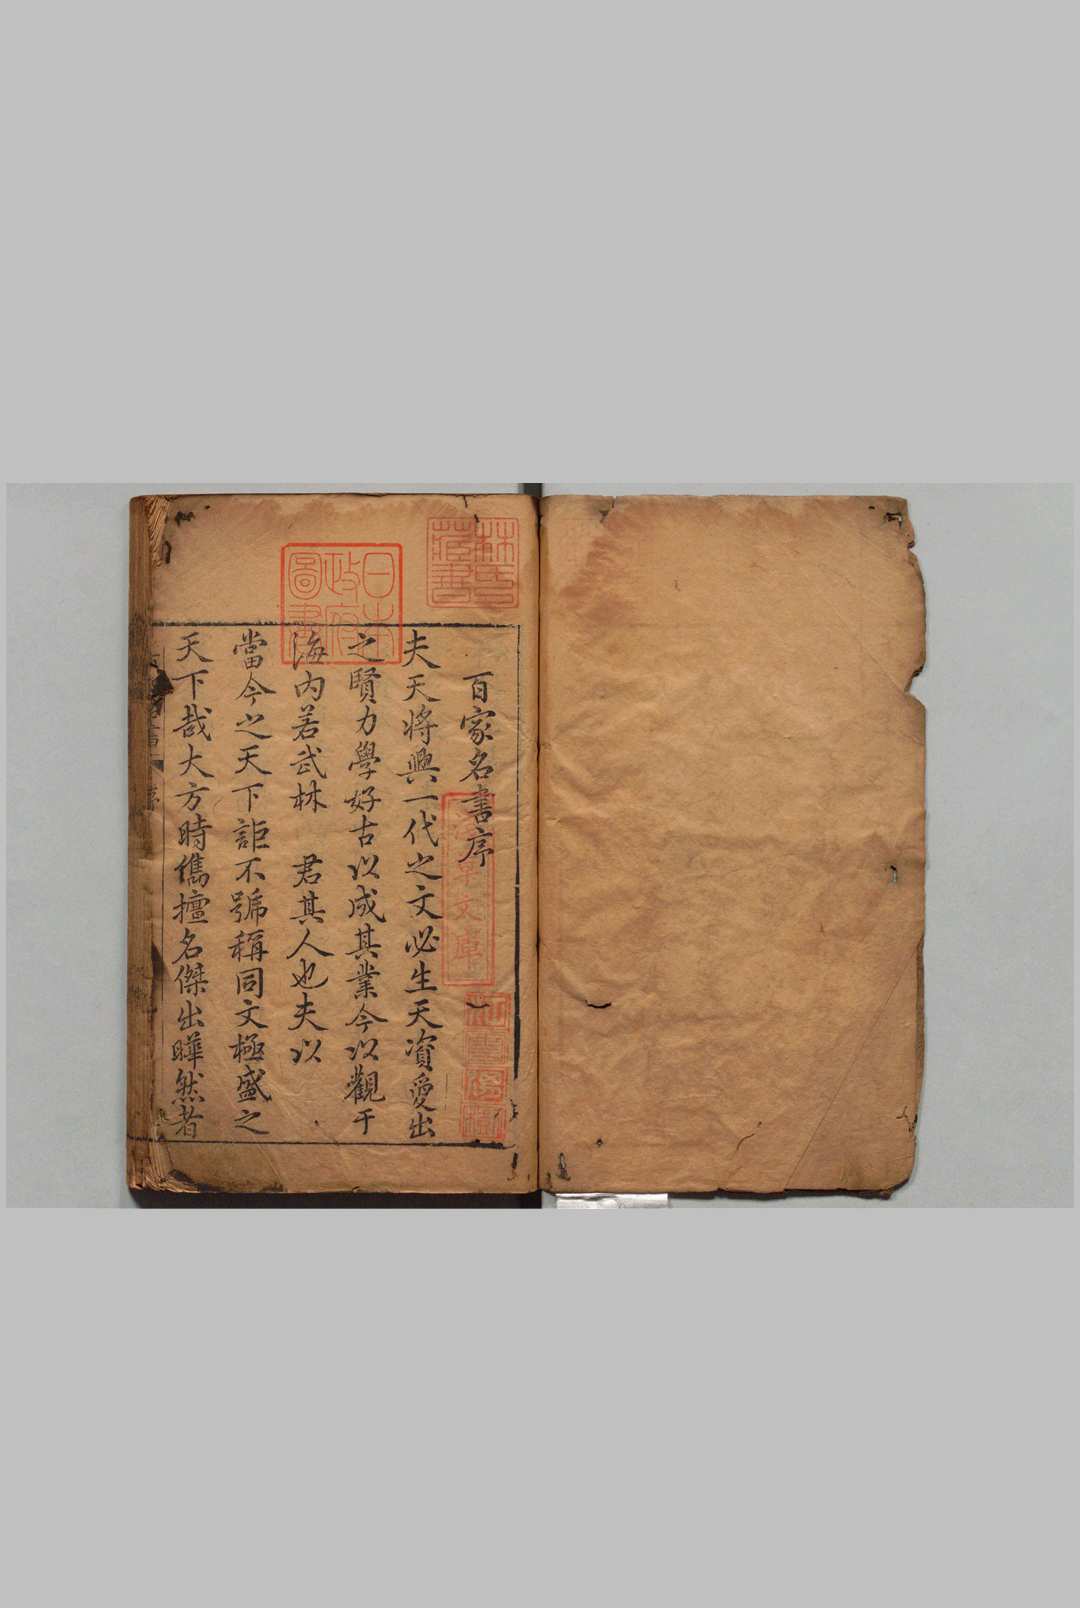 百家名書序
夫天將興一代之文必生天資愛出
之賢力學好古以成其業今以觀于
海内若武林　君其人也夫以
當今之天下詎不號稱同文極盛之
天下哉大方時儁擅名傑出曄然者
林氏藏書
日本政府圖書
淺草文庫